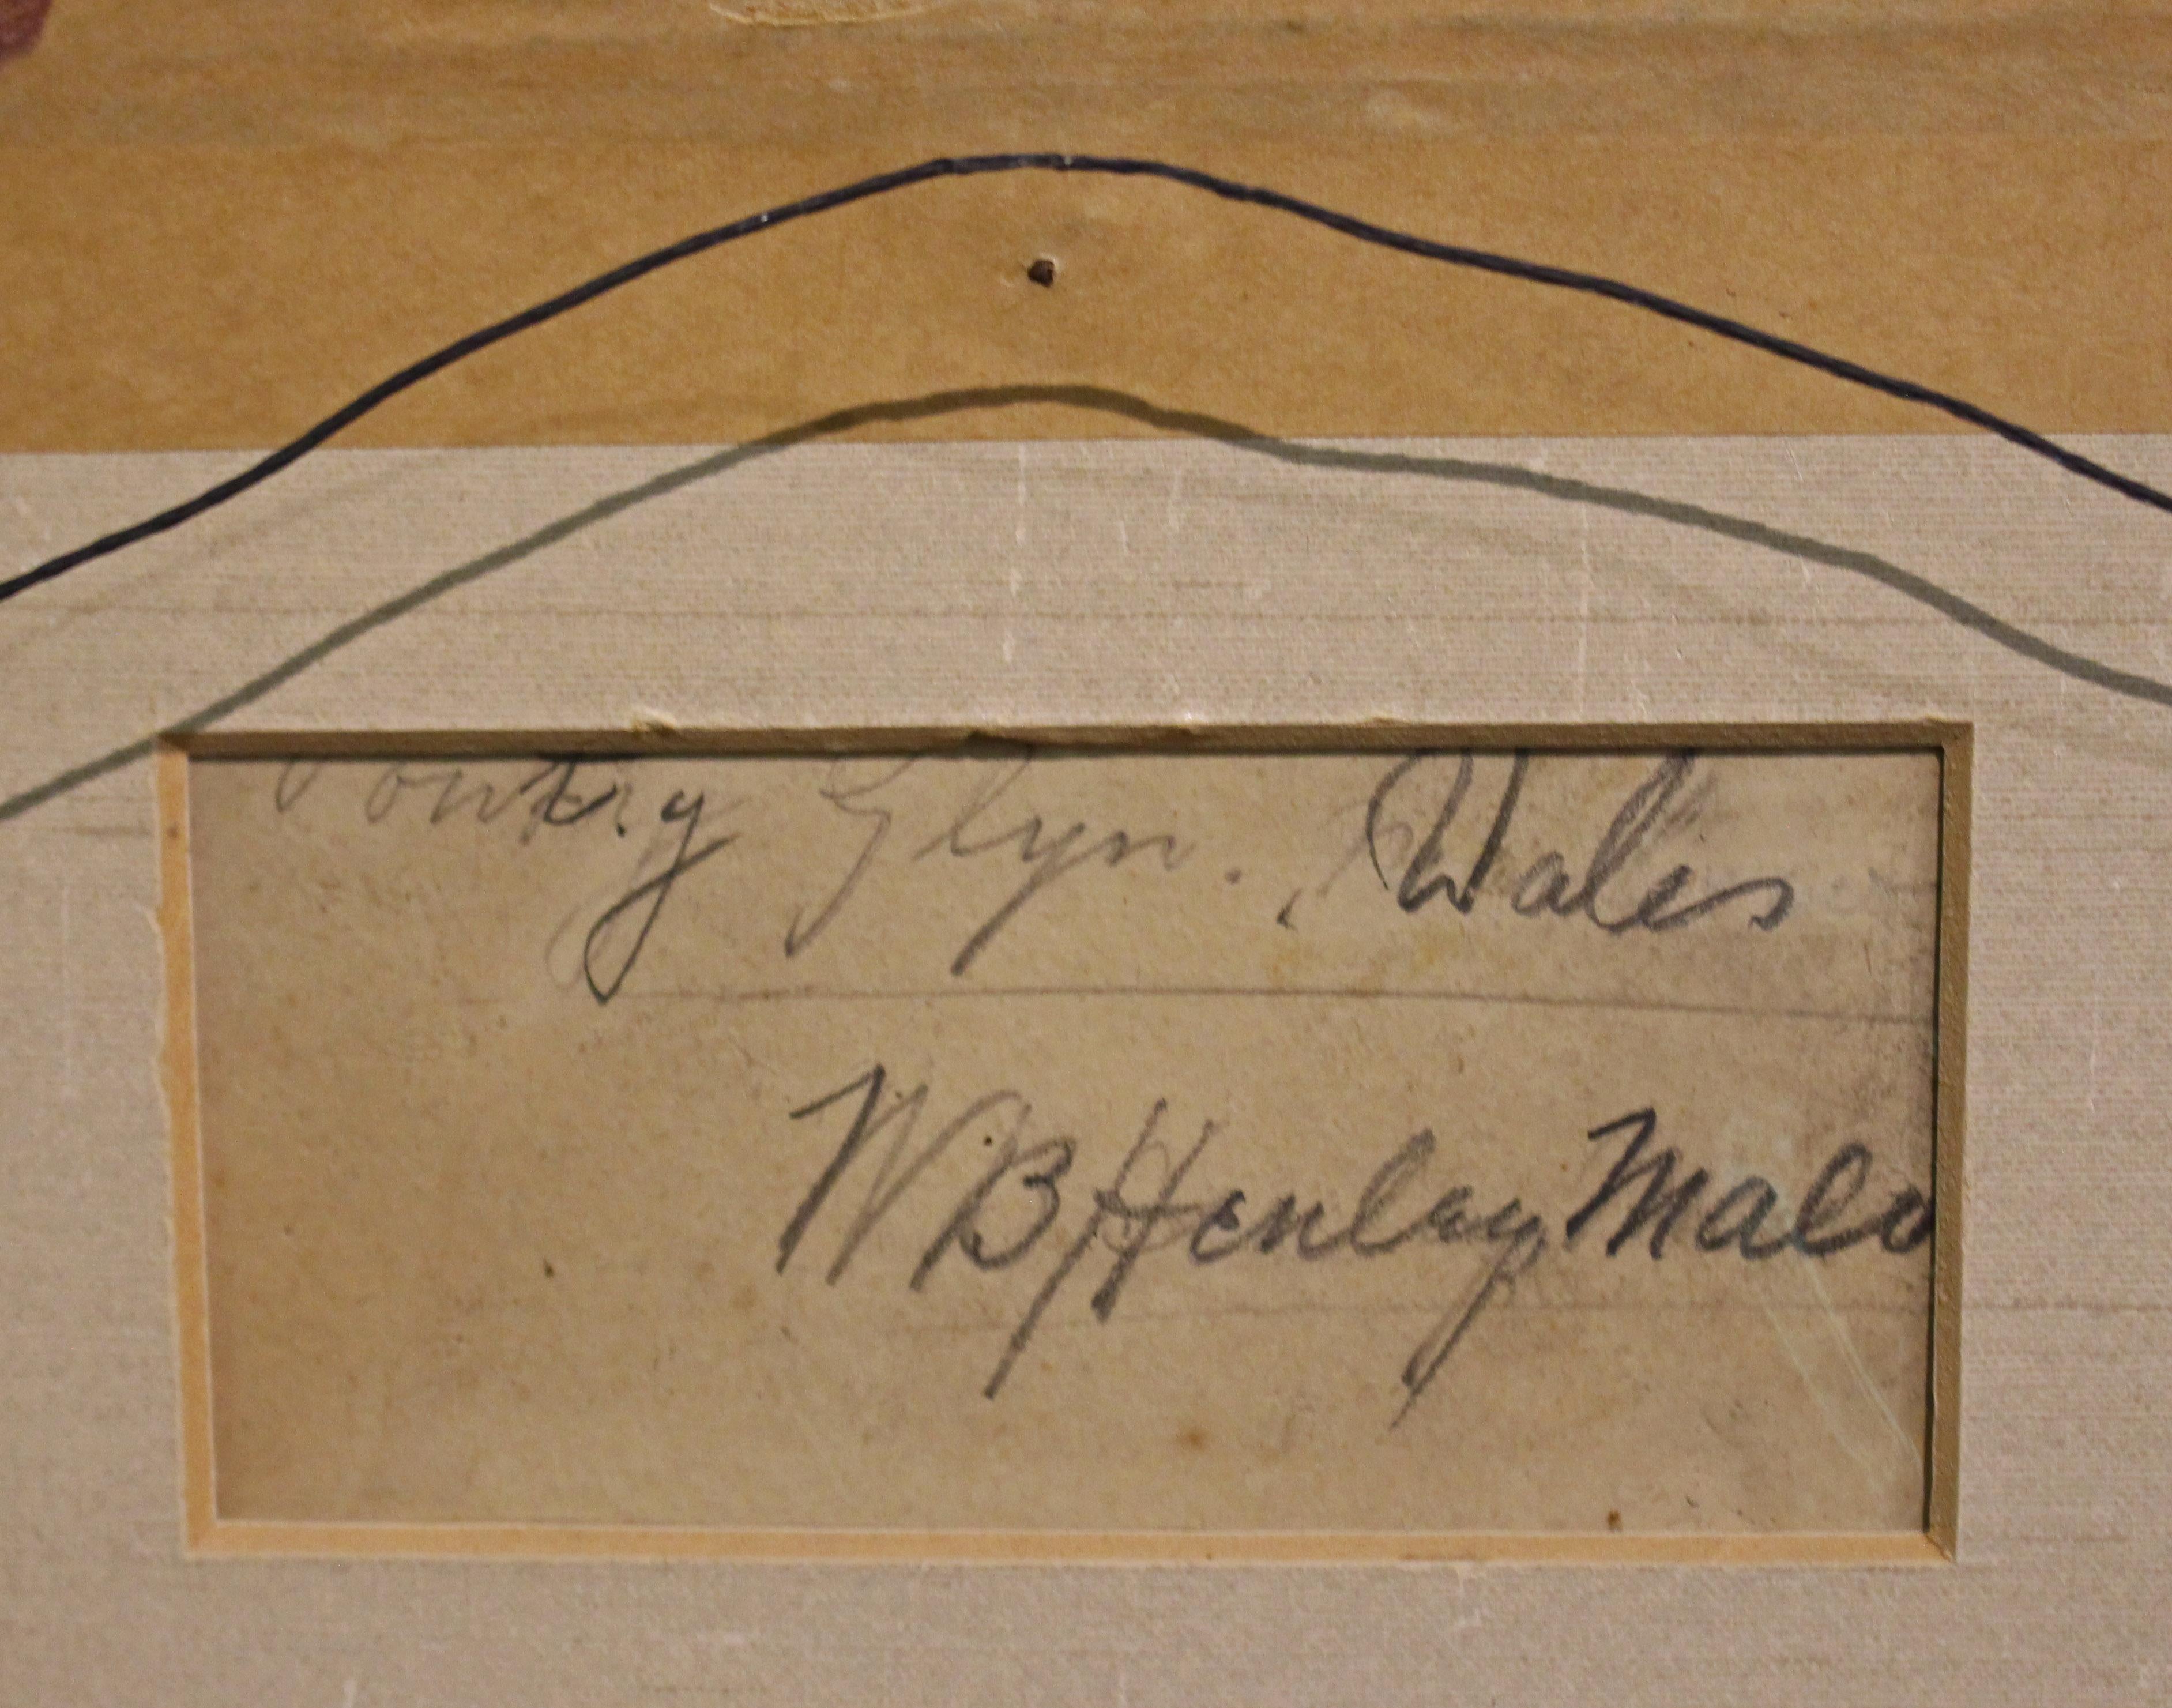 Pontry Glyn. Wales
W B Henley Malo